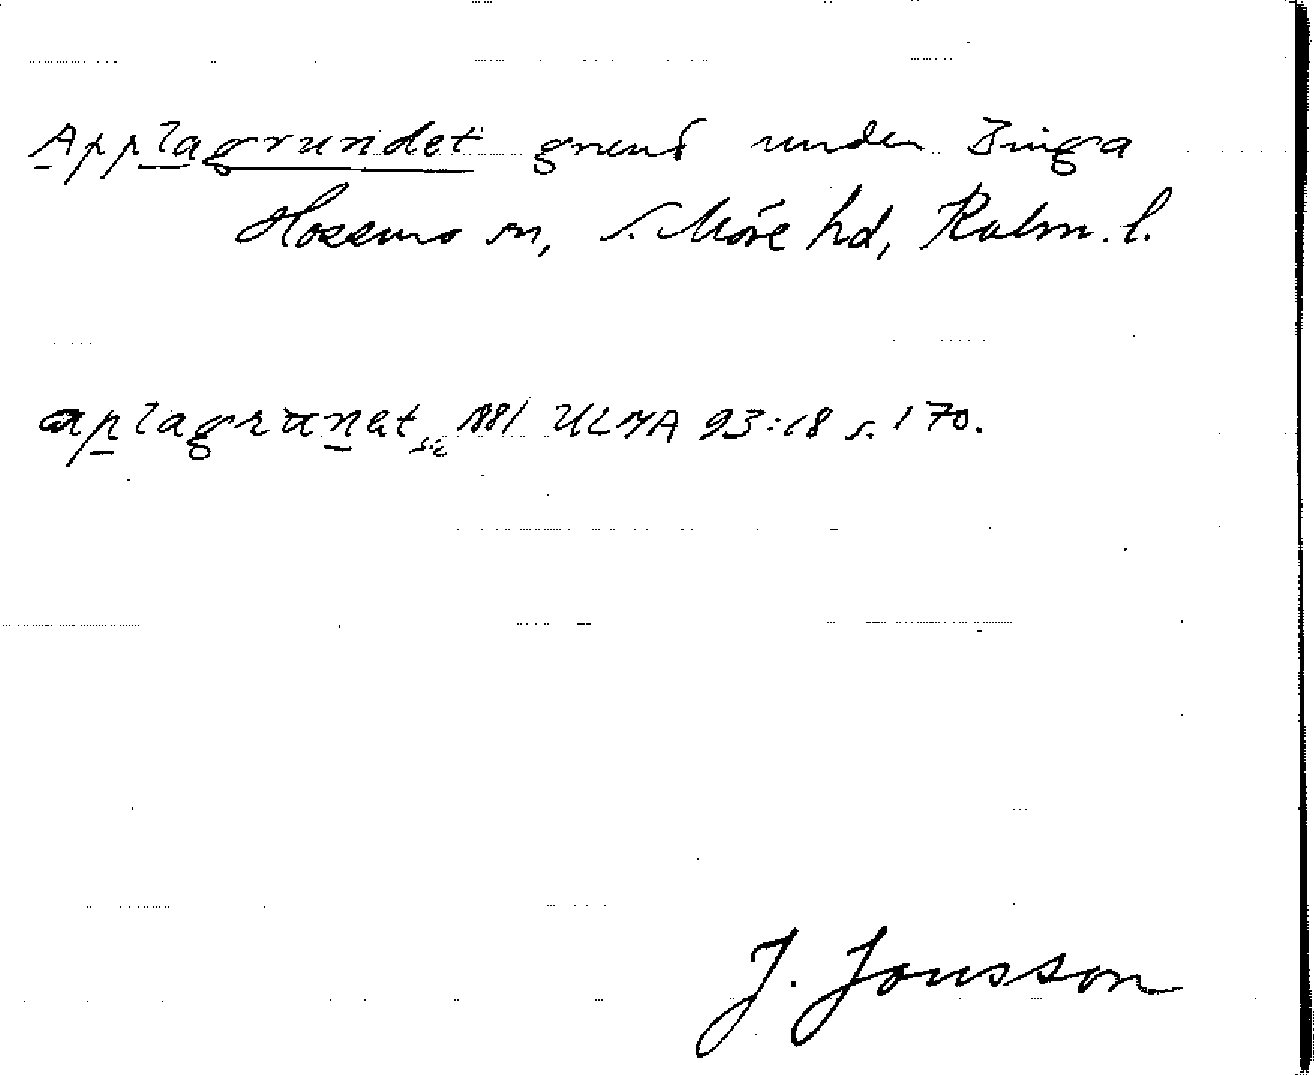 Applagrundet grund under Binga
Hossmo sn, S. Möre hd, Kalm. l.
aplagrunət sic 1881 ULMA 93:18 s. 170.
J. Jonsson